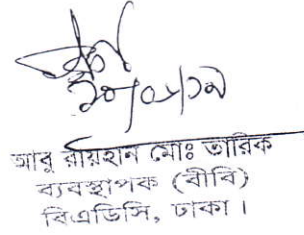 ২০/০৮/১৯
আবু রায়হান মোঃ তারিক
ব্যবস্থাপক (বীবি)
বিএডিসি, ঢাকা।